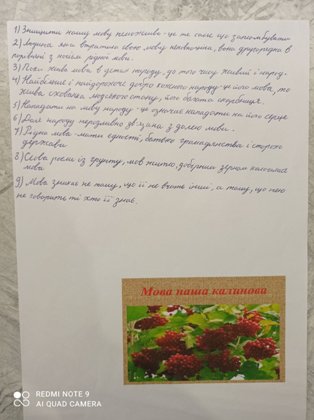 1) Знищити нашу мову неможливо - це те саме що заполювувати
2) Людина яка втратила свою мову неповноцінна, вона другорядна в
порівнянні з носієм рідної мови.
3) Поки живе мова в устах народу, до того часу живий і народ.
4) Найбільше і найдорожче добро кожного народу - це його мова, та
жива схованка людського духу, його багата скарбниця.
5) Нападати на мову народу - це означає нападати на його серце
6) Доля народу нерозривно зв'язана з долею мови.
7) Рідна мова - мати єдності, батько громадянства і сторож
держави
8) Слова росли із ґрунту, мов жито, добірним зерном колосилась
мова
9) Мова зникає не тому, що її не вчать інші, а тому, що нею
не говорять ті хто її знає.
Мова наша калинова
REDMI NOTE 9
AI QUAD CAMERA